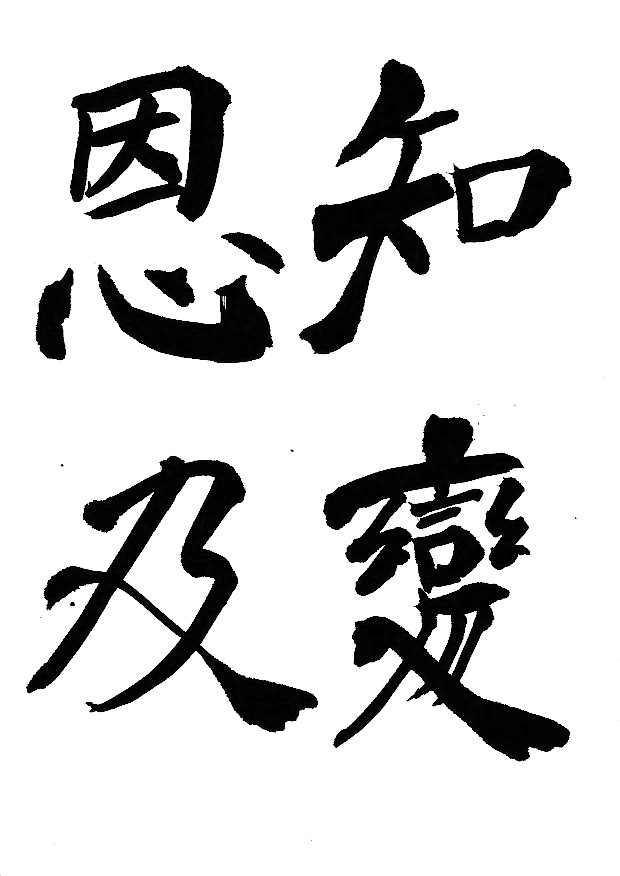 知變
恩及